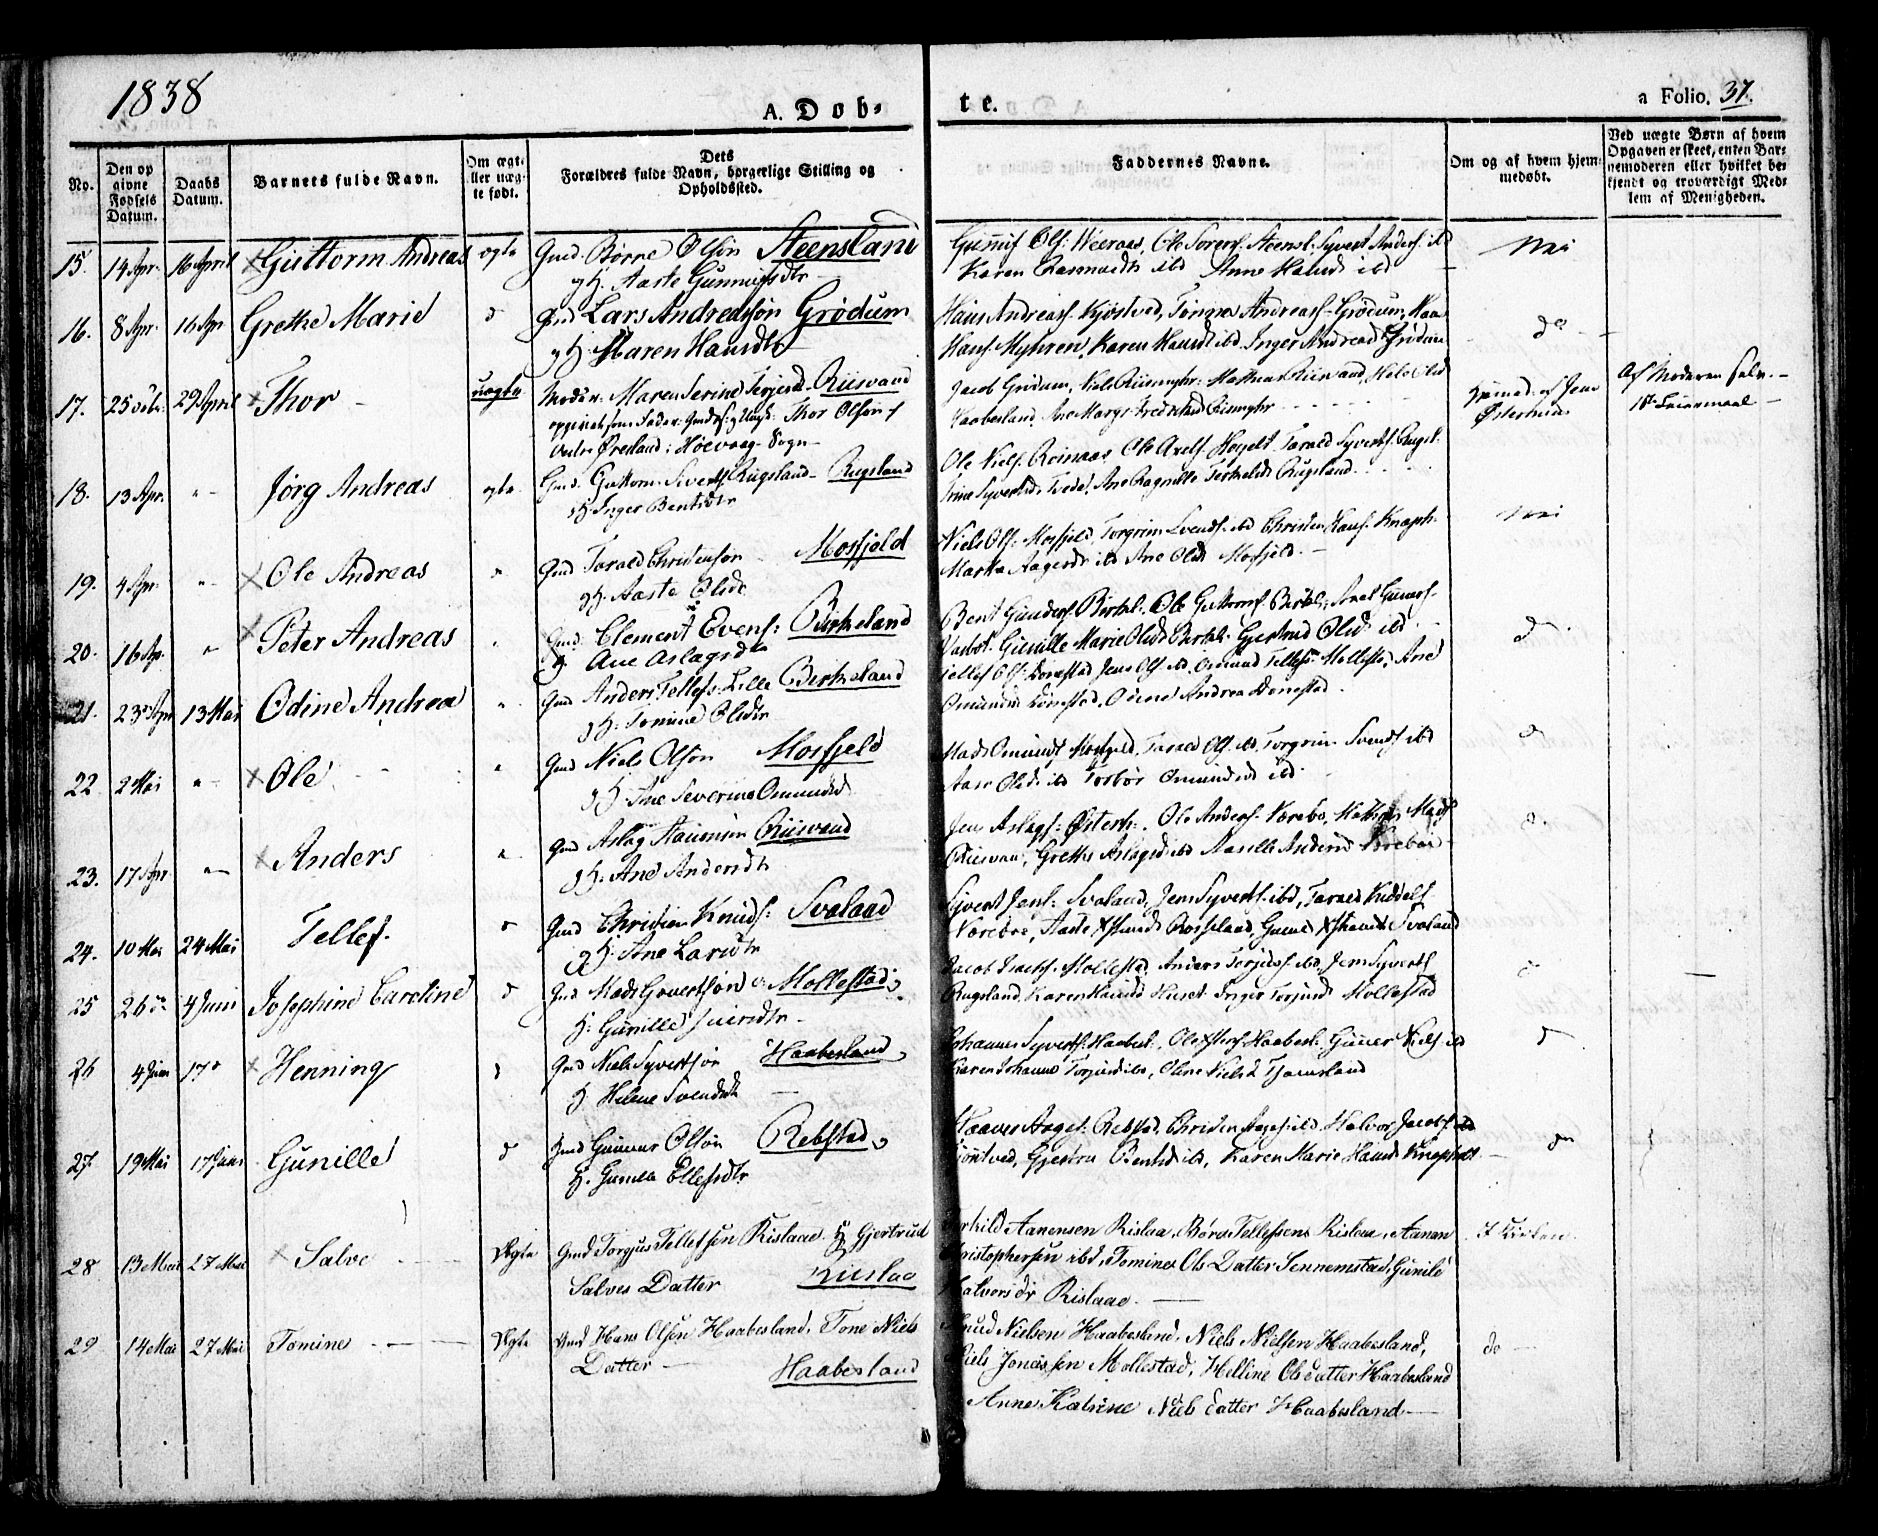 1838
A. Dob-
te.
a Folio. 37.
No.
Den opgivne Fødsels Datum.
Daabs Datum.
Barnets fulde Navn.
Om ægte eller uægte født.
Dets Forældres fulde Navn, borgerlige Stilling og Opholdssted.
Faddernes Navne.
Om og af hvem hjemmedøbt.
Ved uægte Børn af hvem Opgaven er skeet, enten Barnemoderen eller hvilket bekjendt og troværdigt Medlem af Menigheden.
15. 14 Apr. 16 April Guttorm Andreas ægte Gmd. Børre Olsøn Steensland
og H. Aaste Gunnufsdtr
Gunnuf Ols: Veeraas, Ole Sorens. Steensl. Syvert Anders. ibd
Karen Rasmusdtr ibd Anne Hansd ibd
Nei
16. 8 Apr. 16 Apr Grethe Marie d Gmd Lars Andreassøn Grødum
og H. Maren Hansdtr
Hans Andreass. Kjøstved, Tomine Andreasd. Grødum, Haa
Hans. Myhren, Karen Hansd ibd. Inger Andreasd Grødum
do
17. 25 Octr. 29 April Thor uægte Moder: Maren Serine Terjesd. Riisvand
opgivet som Fader: Thor Olsøn
Vestre Øreland i Høevaag Sogn
Jacob Grødum, Niels Riismyhr, Mathias Riisvand, Hele Olsd
Haabesland, Ane Margr. Fredriksd Riismyhr
hjemmed. af Jens
Af Moderen selv.
1ste Leiermaal
18. 13 Apr. Jørg Andreas ægte Gmd. Guttorm Siverts. Rugsland Rugsland
H. Inger Bentsdtr
Ole Niels. Reinaas Ole Axels. Heyelt Tarald Syverts. Rugsl.
Trine Syvertsd. Tvede, Ane Ragnille Terkelsd Rugsland
Nei
19. 4 Apr. Ole Andreas Gmd Tarald Christensøn Mosfjeld
og H. Aaste Olsdtr
Niels Ols: Mosfjeld Torgrim Svends. ibd Christen Hans. Knaph.
Martha Aagesd ibd Ane Olsd Mosfjeld
20. 16 Apr. Peter Andreas Gmd: Clement Evens: Birkeland
og Ane Aslagsdtr
Bent Gunders. Birkel. Ole Guttorms Birkel. Axel Guners.
Vasbot. Gunille Marie Olsd Birkel. Gjertrud Olsd. ibd
d
21. 23 Apr 13 Mai Odine Andrea Gmd Anders Tellefs. Lille Birkeland
og H: Tomine Olsdtr
Tellef Ols. Hønnestad Jens Ols. ibd. Omund Tellefs. Mollestad, Ane
Omundsd Hønnestad, Odine Andrea Hønnestad.
d
22. 2 Mai Ole Gmd Niels Olsøn Mosfjeld
og H. Ane Severine Omundsd
Mads Omunds Mosfjeld, Tarald Ols. ibd. Torgrim Svends ibd
Aase Olsd. ibd Torbor Omundsd ibd.
23. 17 Apr Anders Gmd Aslag Hansen Riisvand
og H. Ane Andersdtr
Jens Aslags: Østerh. Ole Anders. Nærebø, Mathias Mads
Riisvan, Grethe Aslagsd ibd Aaselle Andersd Nærebøe
d.
24. 10 Mai 24 Mai Tellef. d Gmd Christian Knuds: Svaland
og H. Ane Larsdtr
Syvert Jens. Svaland, Jens Syverts. ibd, Tarald Kiddels.
Nærebøe, Aaste Rosseland, Gunild Svaland
25 26 4 Juni Josephine Caroline d Gmd Mads Govertsøn Mollestad
H: Gunille
Jacob Isachs. Mollestad, Anders Terjes. ibd, Jens Syverts.
Rugsland, Karen Hansd Huset. Inger Torjusd Mollestad
26 4 Juni 17 Henning d Gmd Niels Syvertsøn Haabesland
H. Helene Svendsdtr
Johannes Syverts. Haabesl. Ole Haabesl. Gunner Niels. ibd
Karen Johanne Torjusd ibd, Oline Nielsd Tjomsland
d
27. 19 Mai 17 Juni Gunille d Gmd Gunnar Olsøn Rebstad
H. Gunille Ellefsdtr
Haaver Aages. Rebstad, Christen Aages. ibd. Halvor Jacobs. ibd
Gjertru Bentsd ibd, Karen Marie Hansd Knaphol
do
28 13 Mai 27 Mai Salve Ægte Gmd Torgjus Tellefsen Rislaae. H Gjertrud
Salves Datter Riislaa
Terkild Aanensen Rislaa, Børe Tellefsens Rislaa, Aanon
Christophersen ibd, Tomine Ols Datter Sennemstad, Gunild
Halvorsdr Rislaae.
I Kirken
29 14 Mai 27 Mai Tomine Ægte Gmd Hans Olsen Haabesland, Tone Niels
Datter Haabesland
Knud Nielsen Haabesland, Niels Nielsen Haabesland,
Niels Jonassen Mollestad, Helline Olsdatter Haabesland
Anne Katrine Niels datter Haabesland
do